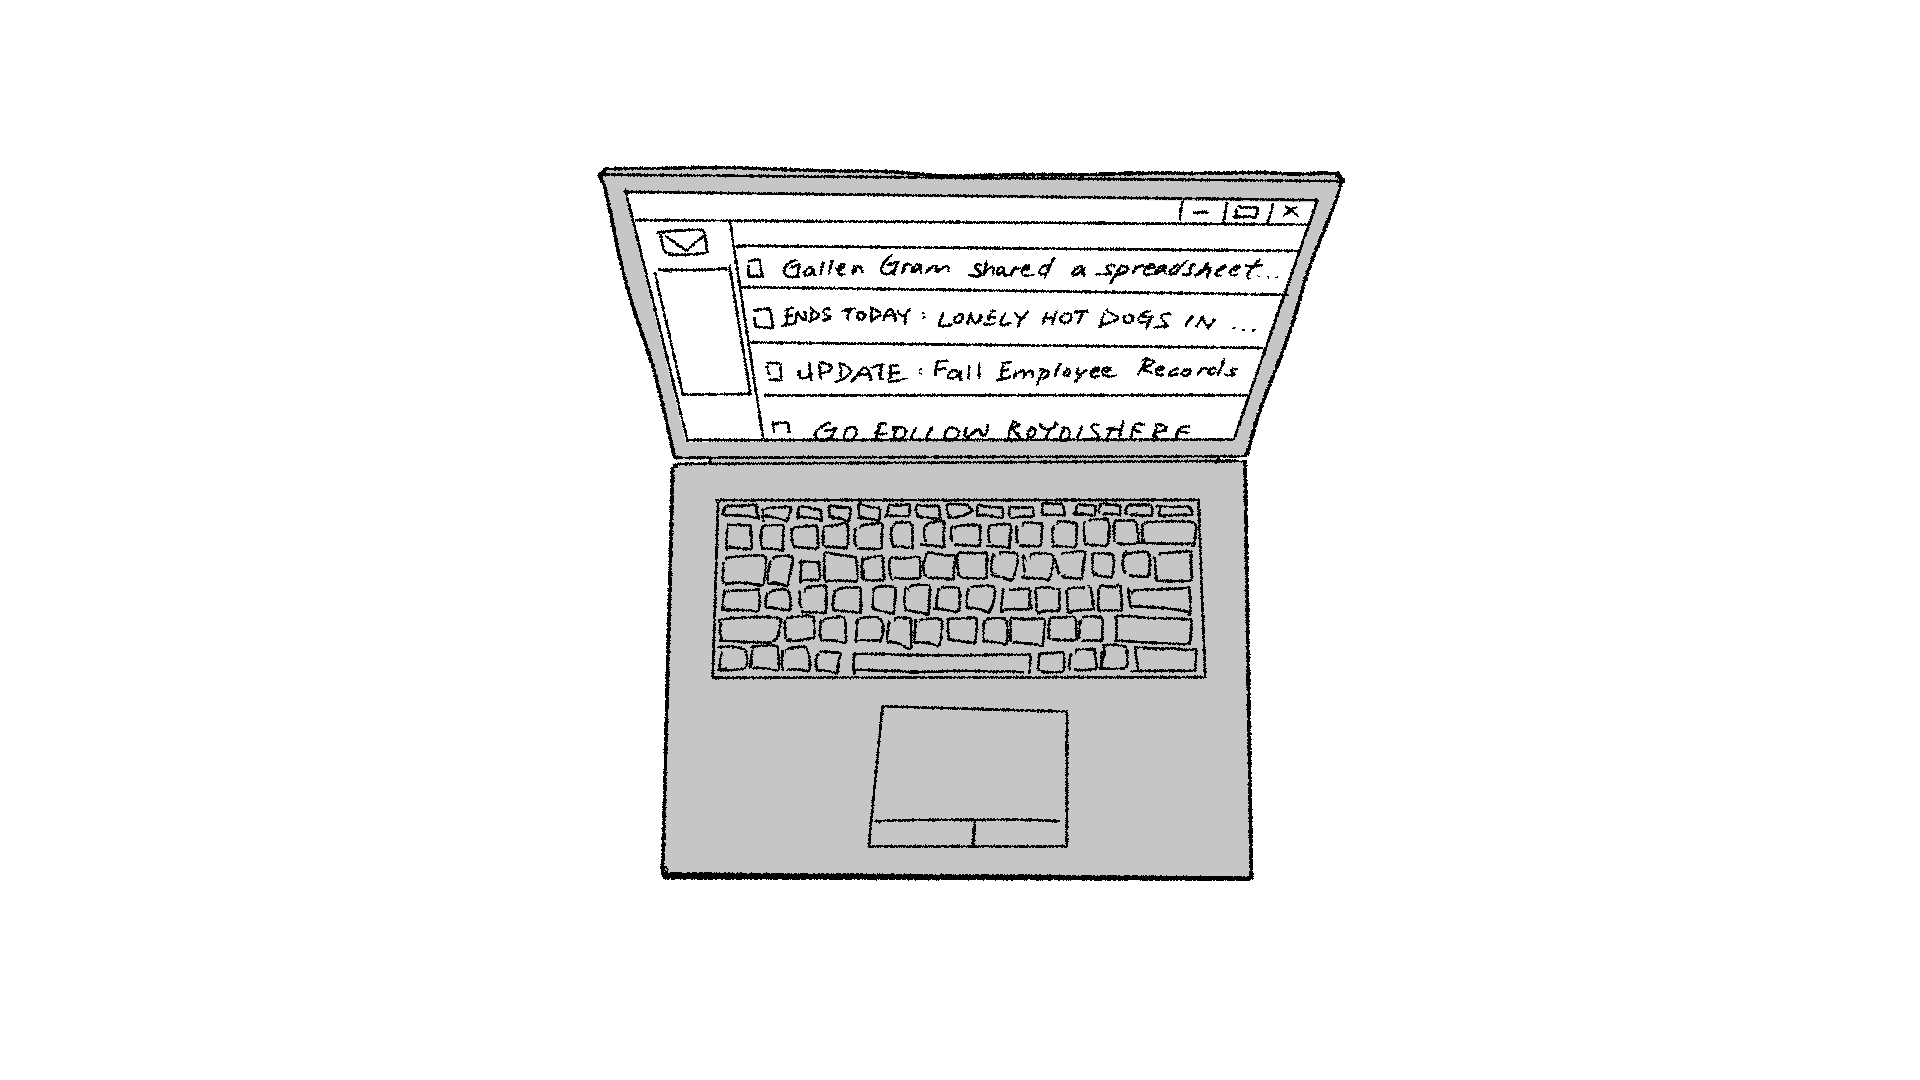 Gallen Gram shared a spreadsheet...
ENDS TODAY: LONELY HOT DOGS IN ...
UPDATE: Fall Employee Records
GO FOLLOW ROYDISHERE